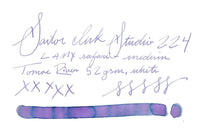 Sailor ink Studio 224
LAMY safari medium
Tomoe River 52 grm, white
XXXXX SSSSS